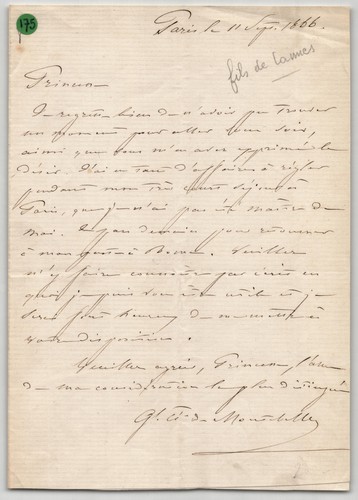 175
Paris le 11 Sept. 1866.
fils de Lannes
Princesse
Je regrette bien de n'avoir pu trouver
un moment pour aller vous voir,
ainsi que vous m'en avez exprimé le
désir. J'ai eu tant d'affaires à régler
pendant mon très court séjour à
Paris, que je n'ai pas été maître de
moi. Je pars demain pour retourner
à mon poste à Berne. Veuillez
m'y faire connaître par écrit en
quoi je puis vous être utile et je
serai fort heureux de me mettre à
votre disposition.
Veuillez agréer, Princesse,
de ma considération la plus distinguée
de Montebello